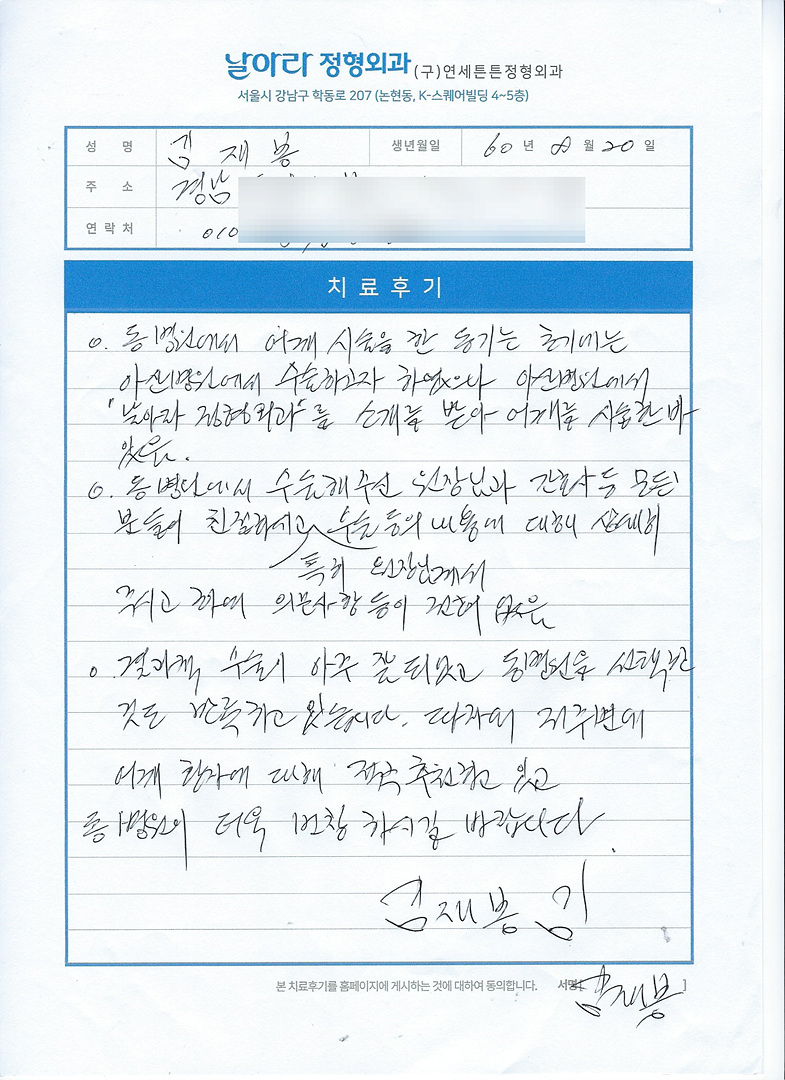 날아라 정형외과 (구)연세튼튼정형외과
서울시 강남구 학동로 207 (논현동, K-스퀘어빌딩 4~5층)
성 명 김 재 봉 생년월일 60 년 8 월 20 일
주 소 경남
연락처 010
치료후기
o. 동병원에서 어깨 시술을 한 동기는 초기에는
아산병원에서 수술하고자 하였으나 아산병원에서
"날아라 정형외과"를 소개를 받아 어깨를 시술한 바
있음.
o. 동병원에서 수술해주신 원장님과 간호사 등 모든
분들이 친절하시고 수술 등의 내용에 대해 상세히
특히 원장님께서
주시고 하여 의문사항 등이 전혀 없음
o. 결과적 수술이 아주 잘 되었고 동병원을 선택한
것도 만족하고 있습니다. 따라서 저 주변에
어깨 환자에 대해 적극 추천하고 있고
동 병원이 더욱 번창 하시길 바랍니다.
김재봉
본 치료후기를 홈페이지에 게시하는 것에 대하여 동의합니다. 서명[김재봉]